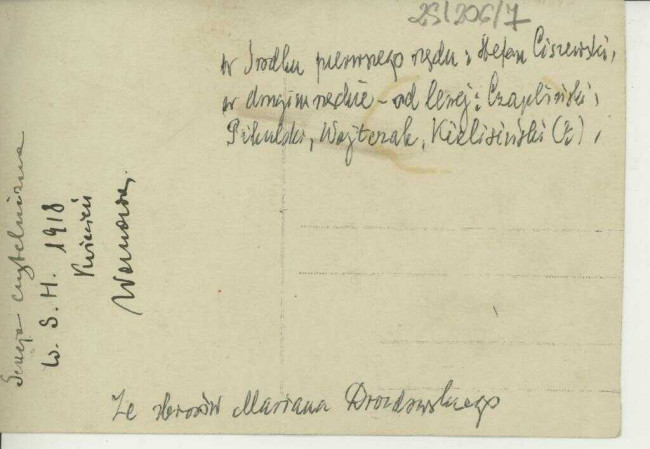 25/206/7
w środku pierwszego rzędu : Stefan Ciszewski,
w drugim rzędzie - od lewej : Czapliński,
Pikulski, Wojtczak, Kieliśiński (?) ,
Sekcja czytelniana
W. S. H. 1918
Kwiecień
Warszawa.
Ze zbiorów Mariana Drozdowskiego